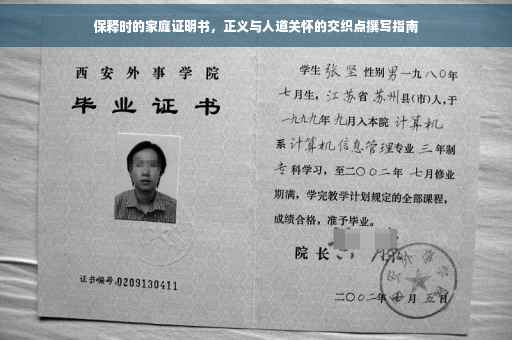 保释时的家庭证明书，正义与人道关怀的交织点撰写指南
西安外事学院
毕业证书
证书编号:0209130411
学生张坚性别男一九八〇年
七月生，江苏省苏州县(市)人,于
一九九九年九月入本院计算机
系计算机信息管理专业三年制
专科学习，至二〇〇二年七月修业
期满，学完教学计划规定的全部课程，
成绩合格，准予毕业。
院长
二〇〇二年 月五日